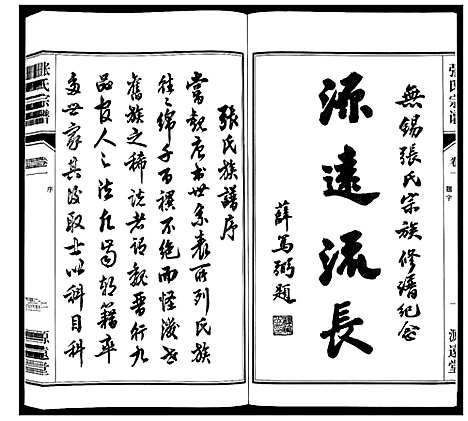 張氏宗譜
卷一
題字
一
源遠堂
無錫張氏宗族修譜紀念
源遠流長
薛篤弼題
張氏族譜序
嘗觀唐書世系表所列氏族
往往綿千百禩不絕而怪後世
舊族之稀說者謂魏晉行九
品官人之法凡登朝籍率
多世家其後取士以科目科
張氏宗譜
卷一
序
源遠堂